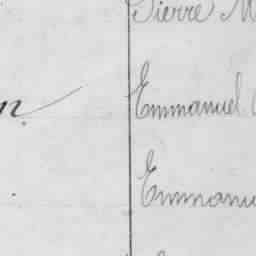 Pierre M
Emmanuel
n
Emmanu